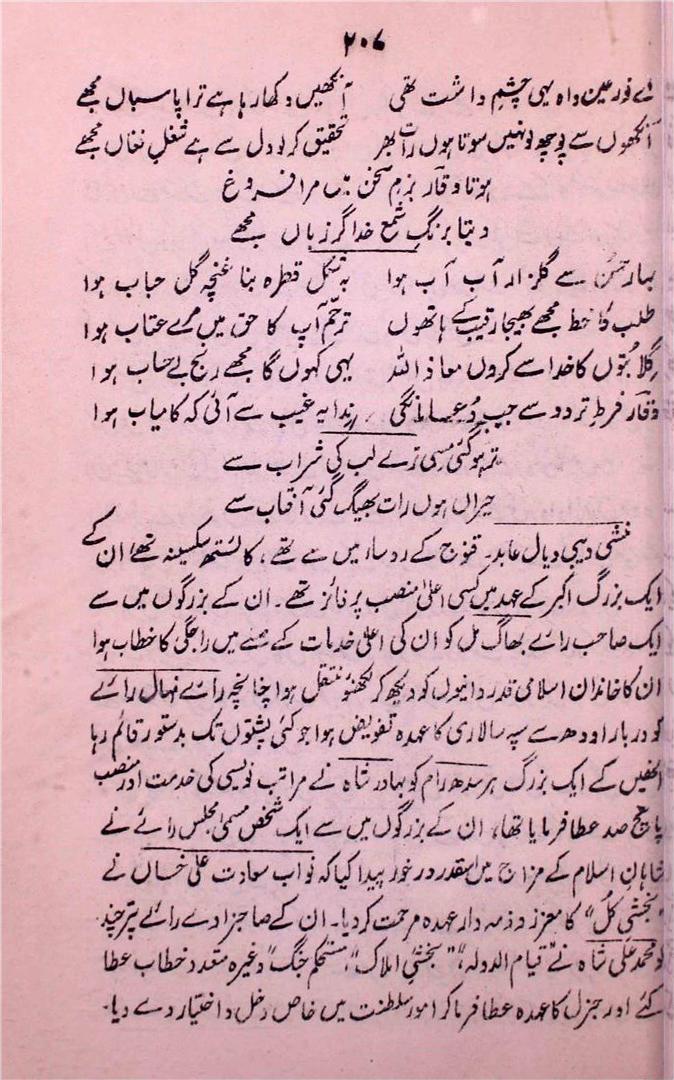 ۲۰۷
اے نور عین واہ یہی چشمِ داشت تھی آنکھیں دکھا رہا ہے ترا پاسباں مجھے
آنکھوں سے پوچھ لو نہیں سوتا ہوں رات بھر تحقیق کر لو دل سے ہے شغلِ فغاں مجھے
ہوتا وقارؔ بزمِ سخن میں مرا فروغ
دیتا برنگِ شمع خدا گر زباں مجھے
بہارِ حسن سے گلزار آب آب ہوا بہ شکل قطرہ بنا غنچہ گل حباب ہوا
طلب کا خط مجھے بھیجا رقیب کے ہاتھوں ترحّم آپ کا حق میں مرے عتاب ہوا
گلا بتوں کا خدا سے کروں معاذ اللہ یہی کہوں گا مجھے رنج بے حساب ہوا
وقارؔ فرطِ تردد سے جب دعا مانگی ندا یہ غیب سے آئی کہ کامیاب ہوا
تر ہو گئی مسی ترے لب کی شراب سے
حیراں ہوں رات بھیگ گئی آفتاب سے
منشی دیبی دیال عابد۔ قنوج کے رؤساء میں سے تھے، کائستھ سکسینہ تھے ان کے
ایک بزرگ اکبر کے عہد میں کسی اعلیٰ منصب پر فائز تھے۔ ان کے بزرگوں میں سے
ایک صاحب رائے بھاگ مل کو ان کی اعلیٰ خدمات کے صلے میں راجگی کا خطاب ہوا
ان کا خاندان اسلامی قدر دانیوں کو دیکھ کر لکھنؤ منتقل ہوا چنانچہ رائے نہال رائے
کو دربار اودھ سے سپہ سالاری کا عہدہ تفویض ہوا جو کئی پشتوں تک بدستور قائم رہا
انھیں کے ایک بزرگ ہر سدھ رام کو بہادر شاہ نے مراتب نویسی کی خدمت اور منصب
پانچ صد عطا فرمایا تھا، ان کے بزرگوں میں سے ایک شخص مسمیٰ مجلس رائے نے
شاہانِ اسلام کے مزاج میں اسقدر درخور پیدا کیا کہ نواب سعادت علی خاں نے
"بخشی کل" کا معزز و ذمہ دار عہدہ مرحمت کر دیا۔ ان کے صاجزادے رائے پتر چند
کو محمد علی شاہ نے "قیام الدولہ"، "بخشی املاک"، "مستحکم جنگ" وغیرہ متعدد خطاب عطا
کئے اور جنرل کا عہدہ عطا فرما کر امور سلطنت میں خاص دخل و اختیار دے دیا۔